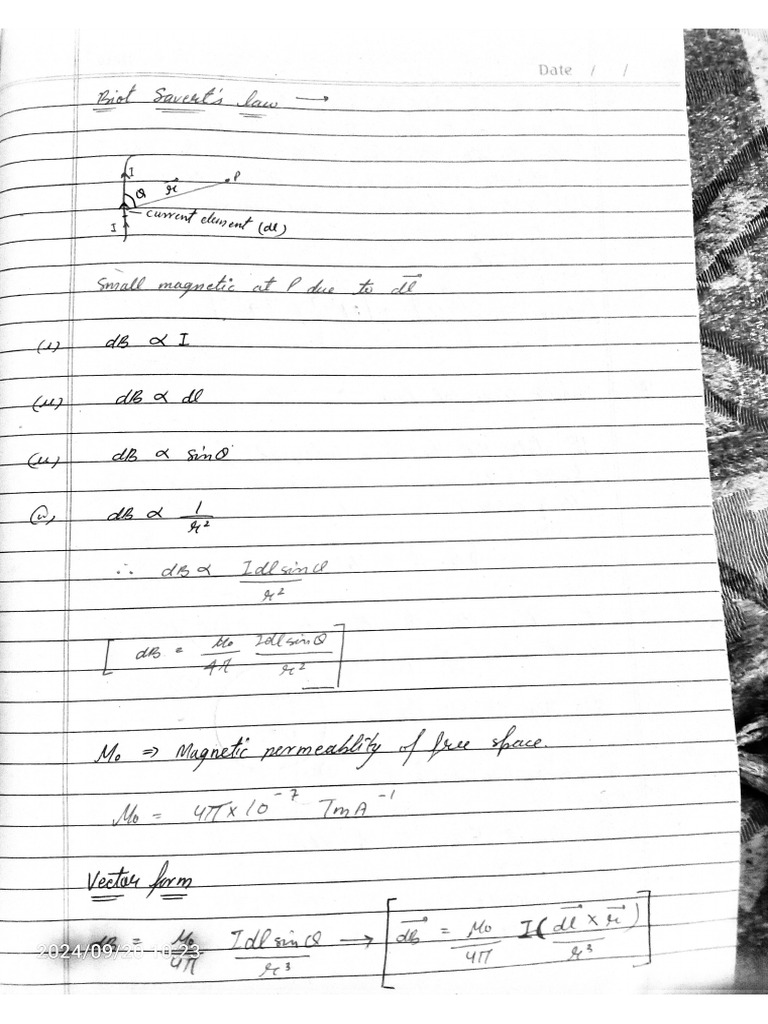 Date / /
Biot Savert's law →
I
θ r⃗ P
current element (dl)
I
Small magnetic at P due to dl⃗
(i) dB ∝ I
(ii) dB ∝ dl
(iii) dB ∝ sinθ
(iv) dB ∝ 1/r²
∴ dB ∝ Idlsinθ/r²
[ dB = μ₀/4π Idlsinθ/r² ]
μ₀ ⇒ Magnetic permeablity of free space.
μ₀ = 4π×10⁻⁷ TmA⁻¹
Vector form
dB = μ₀/4π Idlsinθ/r³ → [ dB⃗ = μ₀/4π I(dl⃗ × r⃗)/r³ ]
2024/09/20 10:23